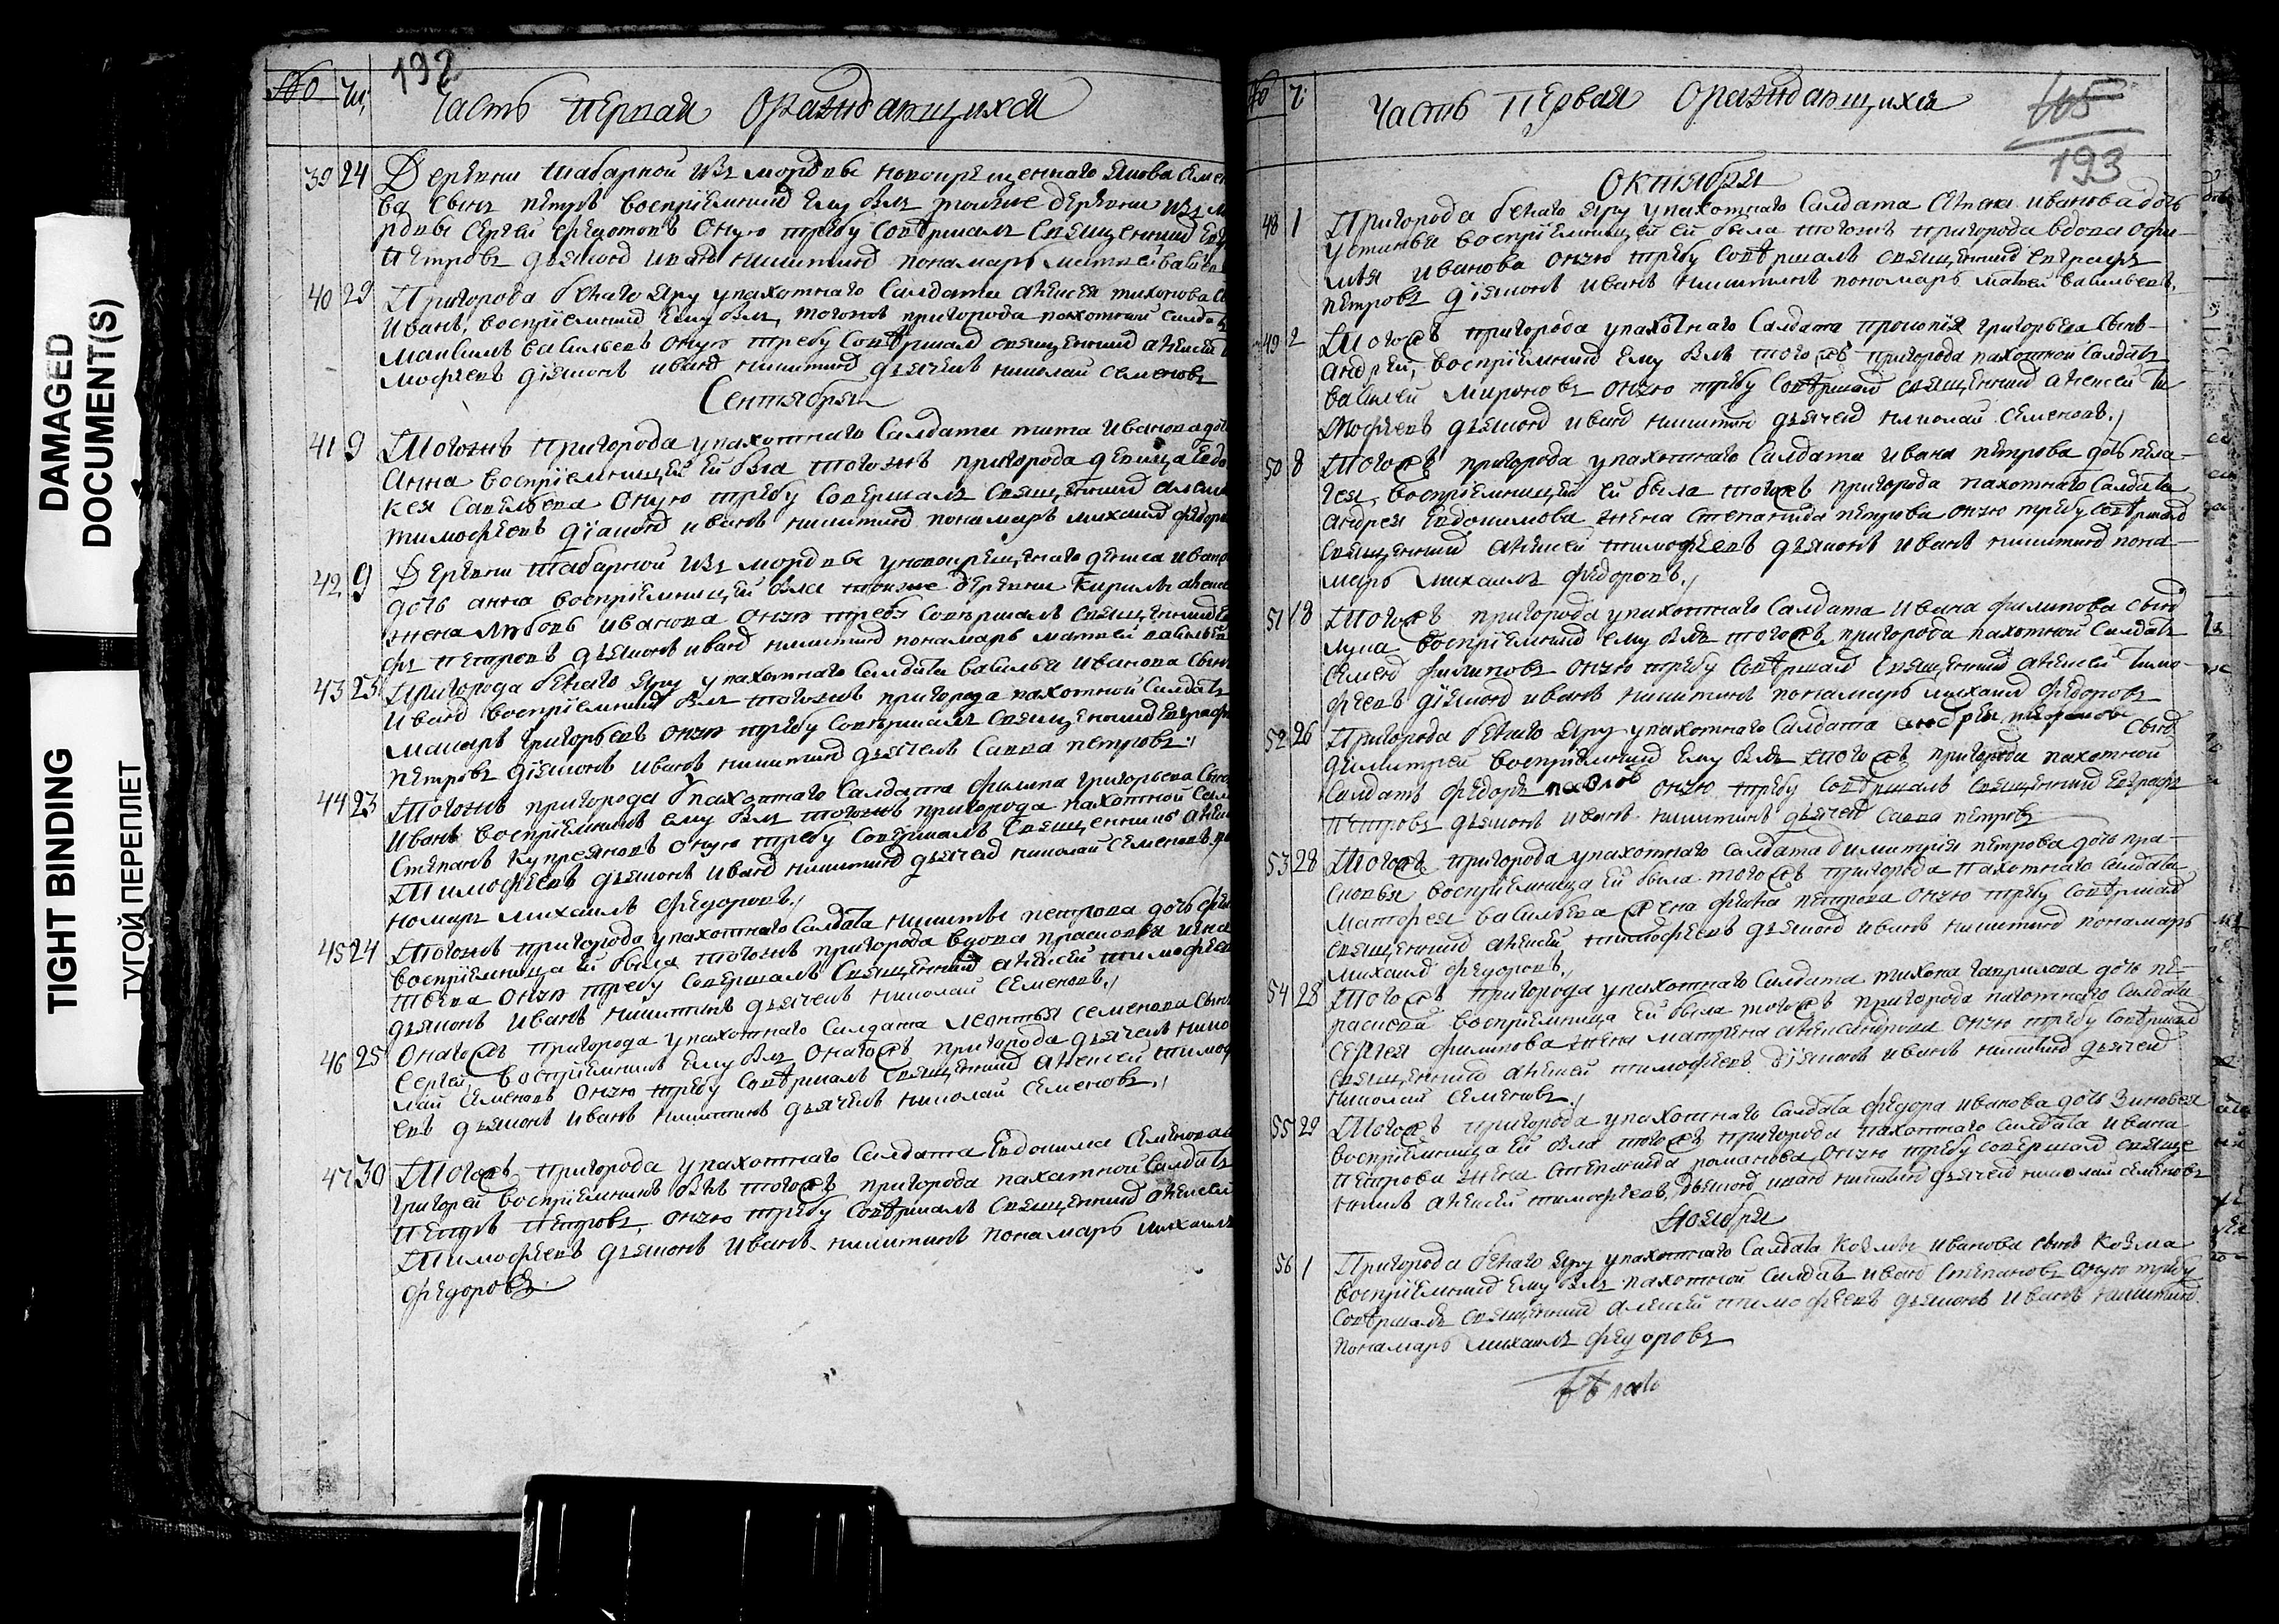 DAMAGED
DOCUMENT(S)
TIGHT BINDING
ТУГОЙ ПЕРЕПЛЕТ
192
№ Чи,
Часть первая ораждающихся
39 24 Деревни Шабарной изъ мордвы новокрещеннаго Якова Семе
ва сынъ петръ воспріемникъ ему былъ тоиже деревни изъ м
рдвы Сергеи оную требу совершалъ священникъ Ев
петровъ дьяконъ иванъ никитинъ понамарь матвеи василе
40 29 Пригорода белаго яру у пахотнаго салдата алексея тихонова с
иванъ, воспріемникъ ему былъ, тогожъ пригорода пахотнои салдатъ
максимъ васильевъ оную требу совершалъ священникъ алексеи т
мофеевъ діяконъ иванъ никитинъ дьячекъ николаи семеновъ
Сентября
41 9 Тогожъ пригорода у пахотнаго салдата тита иванова доч
анна воспріемницеи еи была тогожъ пригорода девица Евдо
кея савельева оную требу совершалъ священникъ алек
тимофеевъ діаконъ иванъ никитинъ понамарь михаилъ федоро
42 9 Деревни Шабарной изъ мордвы у новокрещенаго дениса ивано
дочь анна воспріемницеи была тоиже деревни кирилы алексе
жена любовь иванова оную требу совершалъ священникъ Ев
фъ петровъ дьяконъ иванъ никитинъ понамарь матвеи василье
43 23 Пригорода белаго яру у пахотнаго салдата василья иванова сынъ
иванъ воспріемникъ былъ тогожъ пригорода пахотнои салдатъ
макаръ григорьевъ оную требу совершалъ священникъ Евграфъ
петровъ діяконъ иванъ никитинъ дьячекъ савва петровъ
44 23 Тогожъ пригорода у пахотнаго салдата филипа григорьева сынъ
иванъ воспріемникъ ему былъ тогожъ пригорода пахотнои сал
степанъ купреяновъ оную требу совершалъ священникъ алек
Тимофеевъ дьяконъ иванъ никитинъ дьячекъ николаи семеновъ по
номарь михаилъ федоровъ
45 24 Тогожъ пригорода у пахотнаго салдата никиты петрова дочь
воспріемница еи была тогожъ пригорода вдова прасковья игна
тьева оную требу совершалъ священникъ алексеи тимофеев
дьяконъ иванъ никитинъ дьячекъ николаи семеновъ
46 25 Онагожъ пригорода у пахотнаго салдата леонтья семенова сынъ
сергеи, воспріемникъ ему былъ онагожъ пригорода дьячекъ нико
лаи семеновъ оную требу совершалъ священникъ алексеи тимоф
евъ дьяконъ иванъ никитинъ дьячекъ николаи семеновъ
47 30 Тогожъ пригорода у пахотнаго салдата Евдокима семенова
григореи воспріемникъ былъ тогожъ пригорода пахатнои салдатъ
петръ петровъ, оную требу совершалъ священникъ алексеи
Тимофеевъ дьяконъ иванъ никитинъ понамарь михаилъ
федоровъ
№ Ч
Часть первая ораждающихся
105
193
октября
48 1 Пригорода белаго яру у пахотнаго салдата иванова дочь
устинья воспріемницеи еи была тогожъ пригорода вдова офи
мья иванова оную требу совершалъ священникъ Евграфъ
петровъ діяконъ иванъ никитинъ пономарь матвеи васильевъ.
49 2 Тогожъ пригорода у пахотнаго салдата прокопія григорьева сынъ
андреи, воспріемникъ ему былъ тогожъ пригорода пахотнои салдатъ
василеи мироновъ оную требу совершалъ священникъ алексеи ти
мофеевъ дьяконъ иванъ никитинъ дьячекъ николаи семеновъ
50 8 Тогожъ пригорода у пахотнаго салдата ивана петрова дочь пела
гея, воспріемницеи еи была тогожъ пригорода пахотнаго салдата
андрея Евдокимова жена степанида петрова оную требу совершалъ
священникъ алексеи тимофеевъ дьяконъ иванъ никитинъ пона
марь михаилъ федоровъ
51 18 Тогожъ пригорода у пахотнаго салдата ивана филипова сынъ
лука воспріемникъ ему былъ тогожъ пригорода пахотнои салдатъ
семенъ филиповъ оную требу совершалъ священникъ алексеи тимо
феевъ діяконъ иванъ никитинъ понамарь михаилъ федоровъ
52 26 Пригорода белаго яру у пахотнаго салдата андрея сынъ
димитреи воспріемникъ ему былъ тогожъ пригорода пахотнои
салдатъ федоръ павловъ оную требу совершалъ священникъ Евграфъ
петровъ дьяконъ иванъ никитинъ дьячекъ савва петровъ
53 28 Тогожъ пригорода у пахотнаго салдата димитрія петрова дочь пра
сковья воспріемница еи была тогожъ пригорода пахотнаго салдата
матфея васильева жена фекла петрова оную требу совершалъ
священникъ алексеи тимофеевъ дьяконъ иванъ никитинъ понамарь
михаилъ федоровъ
54 28 Тогожъ пригорода у пахотнаго салдата тихона гаврилова дочь па
раскева воспріемница еи была тогожъ пригорода пахотнаго салдата
сергея филипова жена матрена александрова оную требу совершалъ
священникъ алексеи тимофеевъ діяконъ иванъ никитинъ дьячекъ
николаи семеновъ
55 29 Тогожъ пригорода у пахотнаго салдата федора иванова дочь зиновея
воспріемница еи была тогожъ пригорода пахотнаго салдата ивана
петрова жена степанида романова оную требу совершалъ священ
никъ алексеи тимофеевъ, дьяконъ иванъ никитинъ дьячекъ николаи семеновъ
Ноября
56 1 Пригорода белаго яру у пахотнаго салдата козмы иванова сынъ козма
воспріемникъ ему былъ пахотнои салдатъ иванъ степановъ оную требу
совершалъ священникъ алексеи тимофеевъ дьяконъ иванъ никитинъ
понамарь михаилъ федоровъ